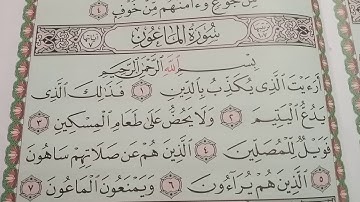 مِّن جُوعٍ وَءَامَنَهُم مِّنْ خَوْفٍۭ ٤
سُورَةُ المَاعُونِ
بِسْمِ اللَّهِ الرَّحْمَٰنِ الرَّحِيمِ
أَرَءَيْتَ الَّذِى يُكَذِّبُ بِالدِّينِ ١ فَذَٰلِكَ الَّذِى
يَدُعُّ الْيَتِيمَ ٢ وَلَا يَحُضُّ عَلَىٰ طَعَامِ الْمِسْكِينِ ٣
فَوَيْلٌ لِّلْمُصَلِّينَ ٤ الَّذِينَ هُمْ عَن صَلَاتِهِمْ سَاهُونَ
٥ الَّذِينَ هُمْ يُرَاءُونَ ٦ وَيَمْنَعُونَ الْمَاعُونَ ٧